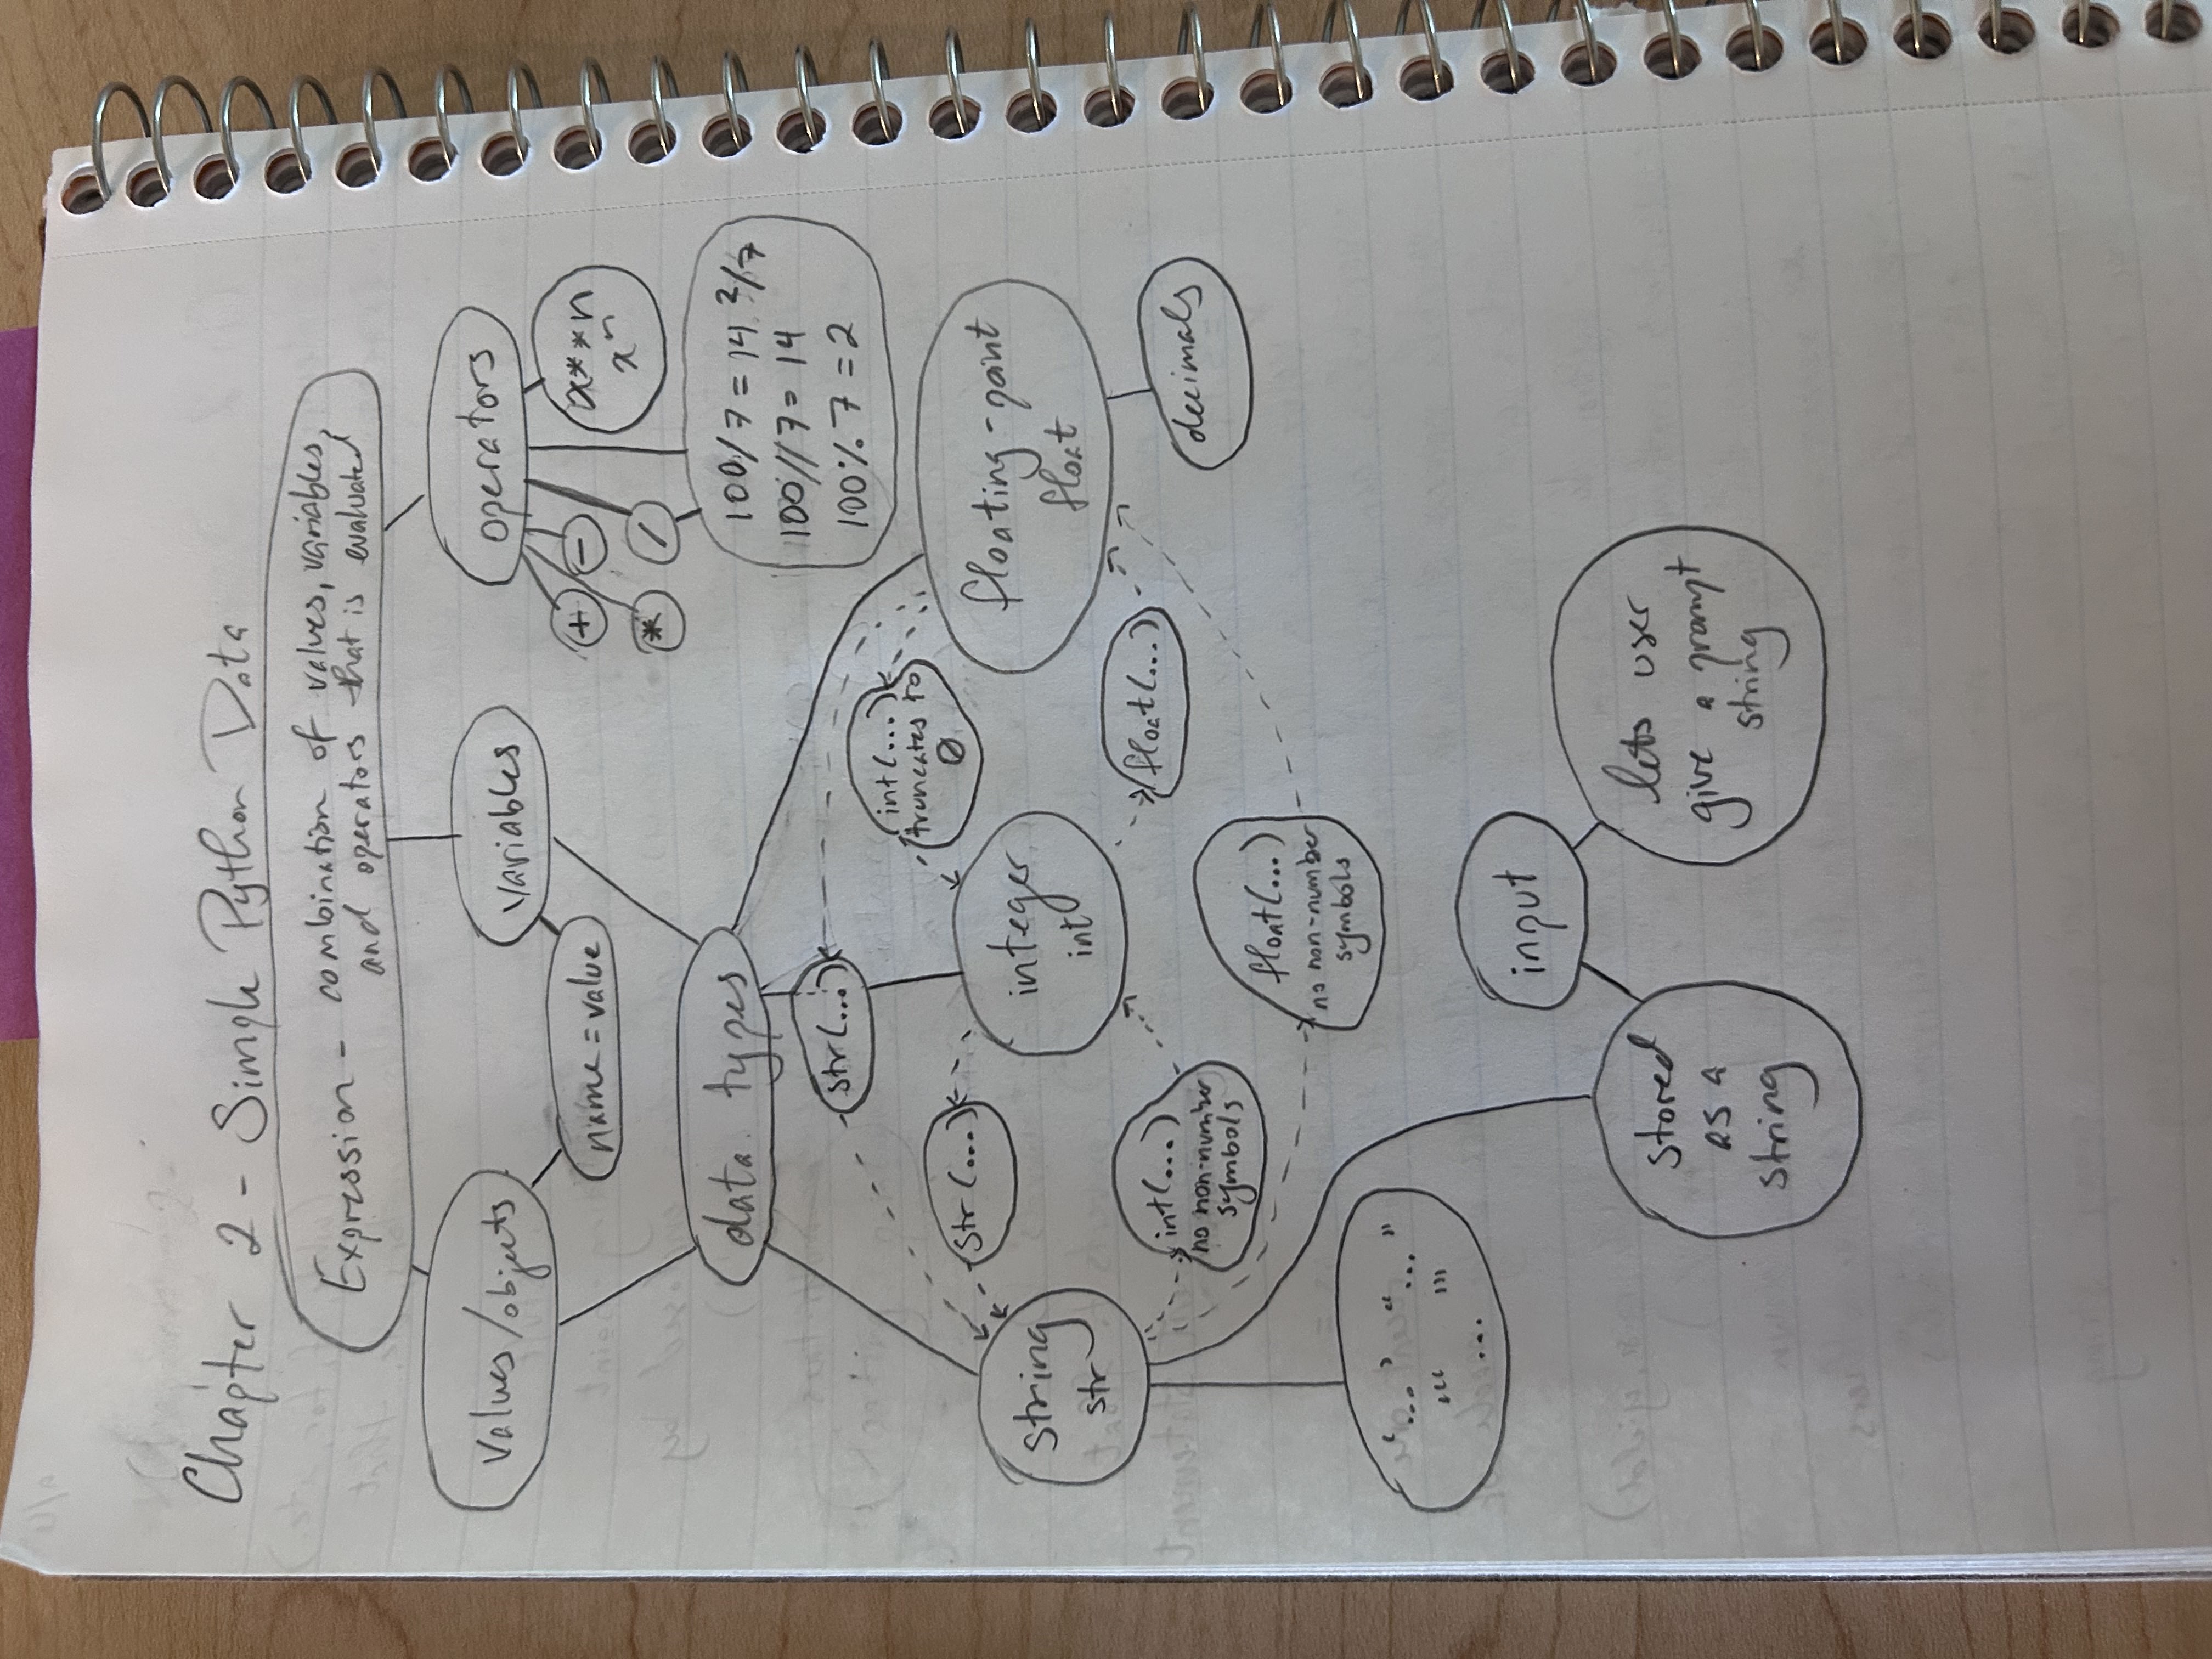 Chapter 2 - Simple Python Data
Expression - combination of values, variables,
and operators that is evaluated
values/objects
variables
operators
name = value
+
-
x**n
xⁿ
*
/
data types
100/7 = 14 2/7
100//7 = 14
100% 7 = 2
str(...)
int(...)
truncates to
0
str(...)
string
str
integer
int
floating-point
float
int(...)
no non-number
symbols
float(...)
decimals
float(...)
no non-number
symbols
'...' "..."
''' '''
...
input
stored
as a
string
lets user
give a prompt
string